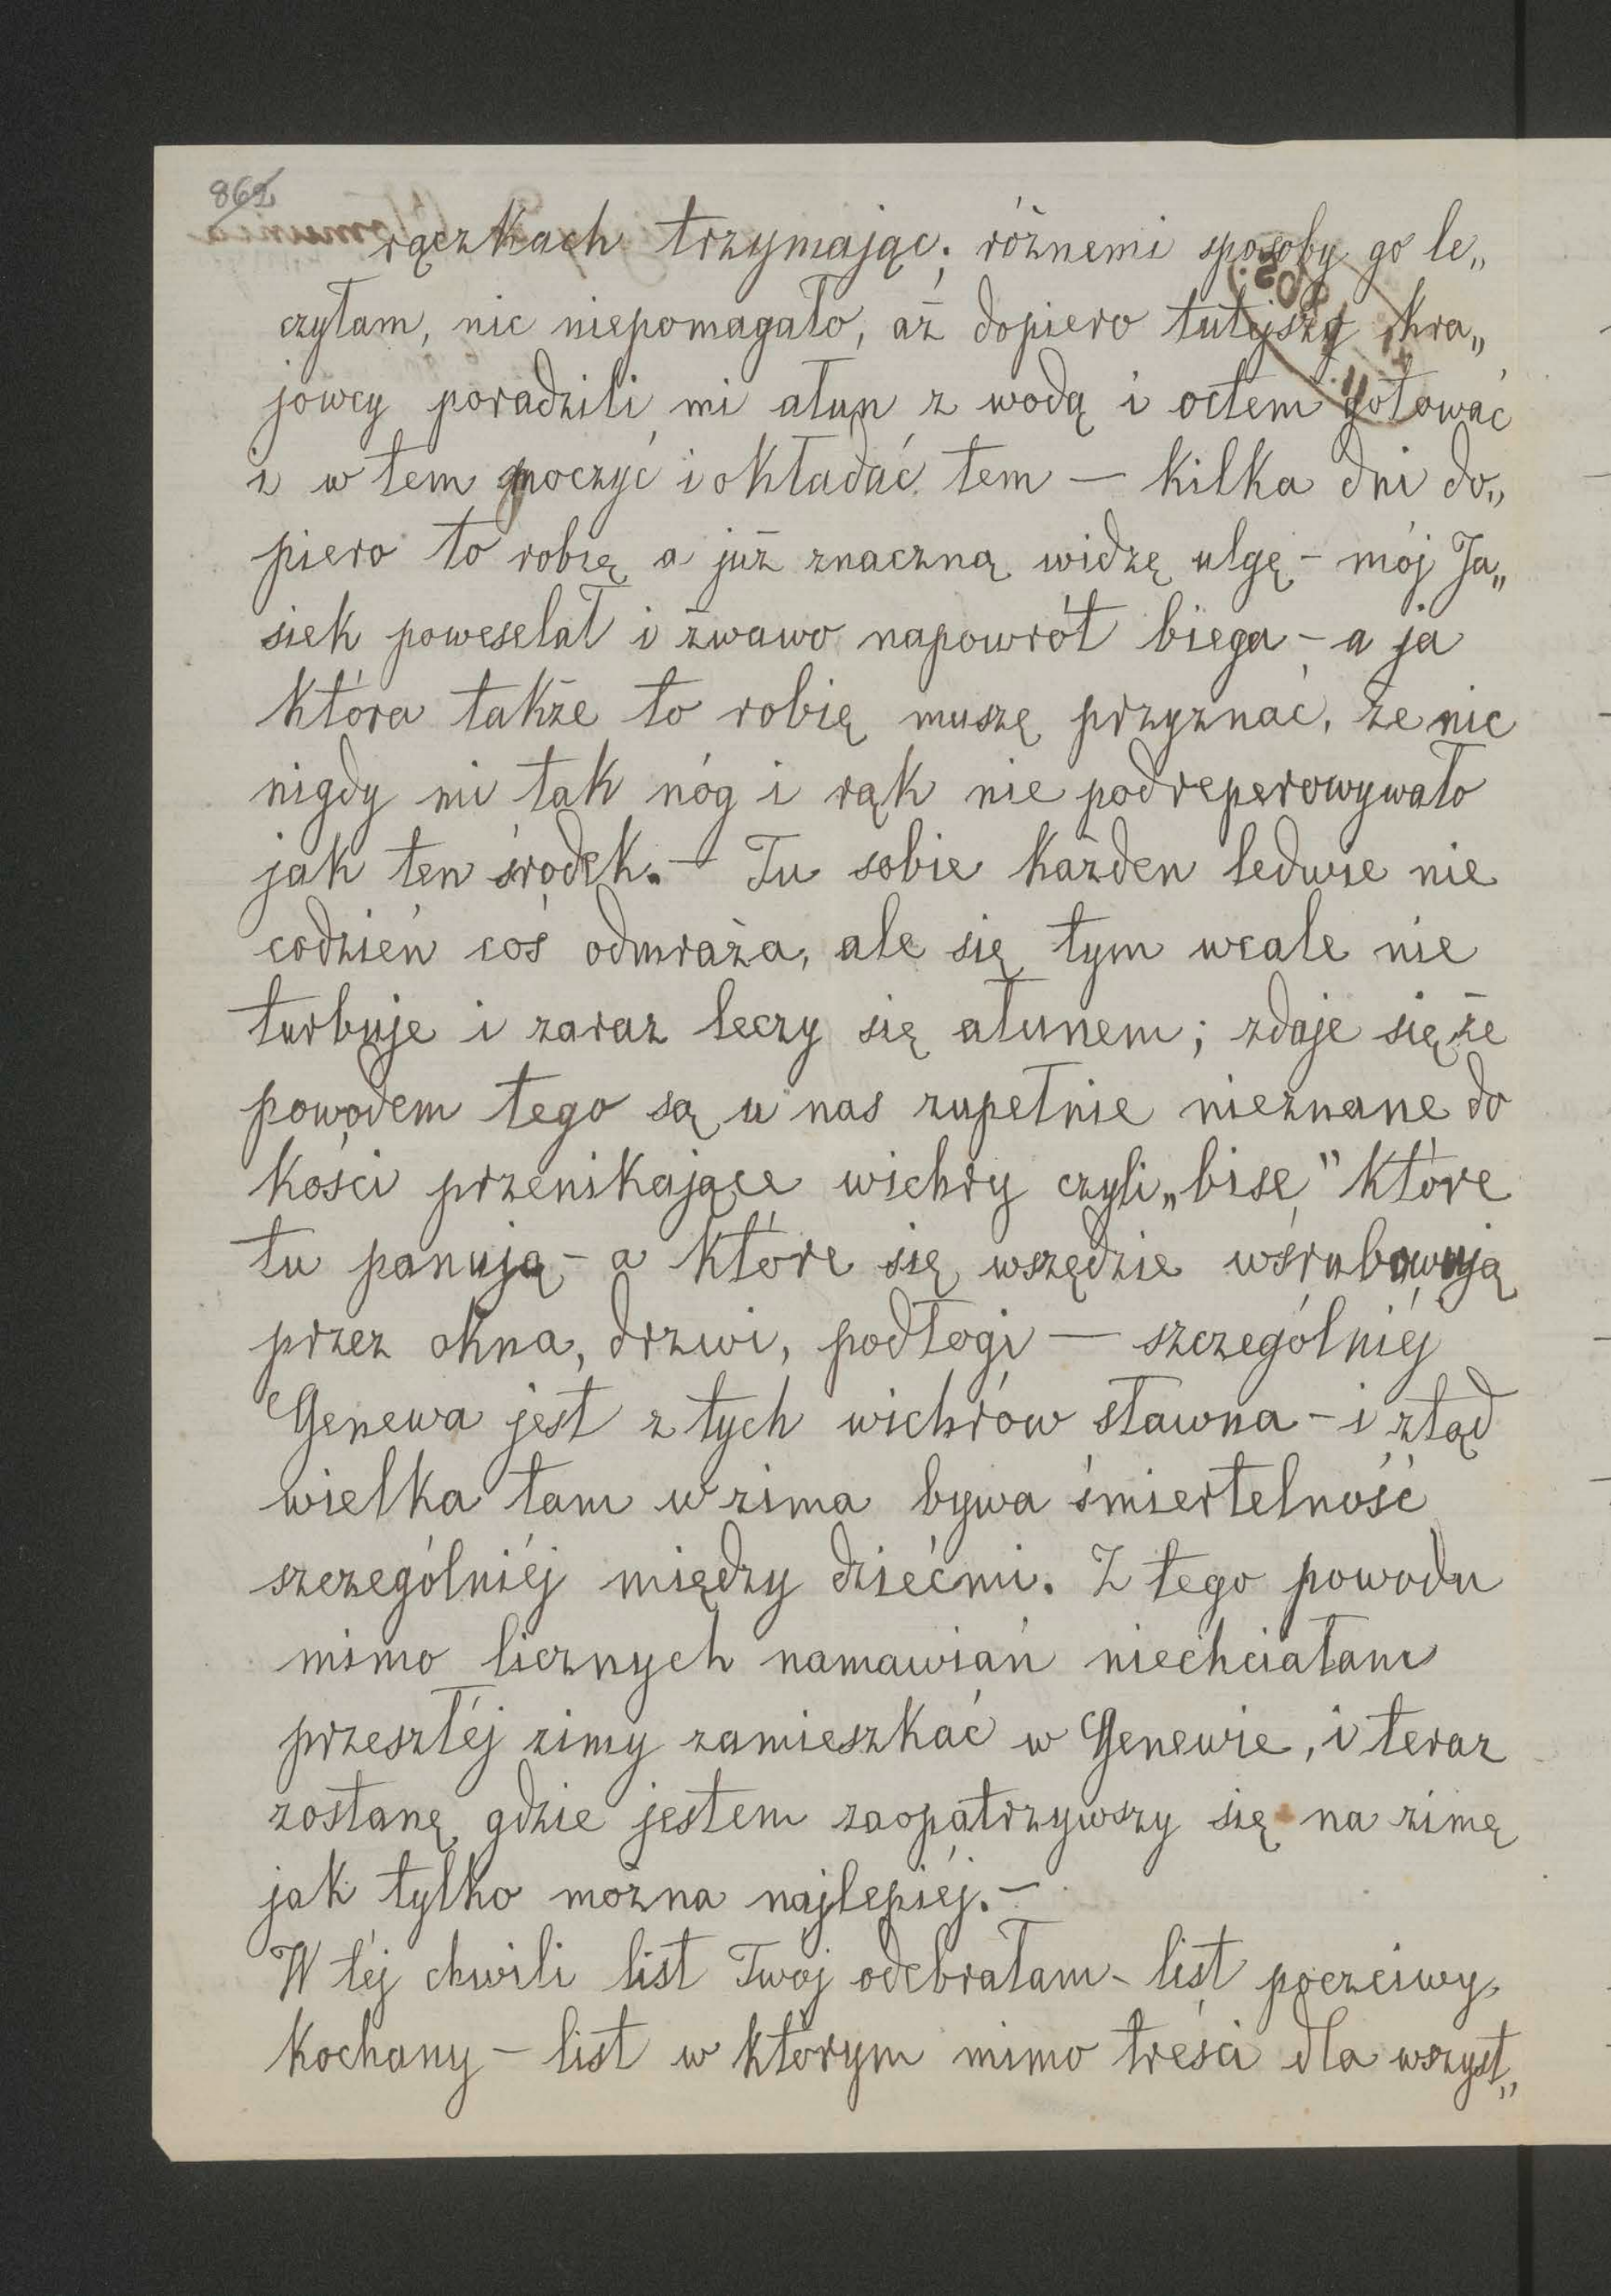 862
rączkach trzymając; różnemi sposoby go le„
czyłam, nic niepomagało, aż dopiero tutejszy kra„
jowcy poradzili mi ałun z wodą i octem gotować
i w tem moczyć i okładać tem — kilka dni do„
piero to robię a już znaczną widzę ulgę – mój Ja„
siek poweselał i żwawo napowrót biega – a ja
która także to robię muszę przyznać, że nic
nigdy mi tak nóg i rąk nie podreperowywało
jak ten środek. – Tu sobie każden ledwie nie
codzień coś odmraża, ale się tym wcale nie
turbuje i zaraz leczy się ałunem; zdaje się że
powodem tego są u nas zupełnie nieznane do
kości przenikające wichry czyli „bise” które
tu panują – a które się wszędzie wśrubowują
przez okna, drzwi, podłogi — szczególniéj
Genewa jest z tych wichrów sławna – i ztąd
wielka tam w zima bywa śmiertelność
szczególniéj między dziećmi. Z tego powodu
mimo licznych namawiań niechciałam
przeszłéj zimy zamieszkać w Genewie, i teraz
zostanę gdzie jestem zaopatrzywszy się na zimę
jak tylko można najlepiéj. –
W téj chwili list Twój odebrałam – list poczciwy,
kochany – list w którym mimo treści dla wszyst„